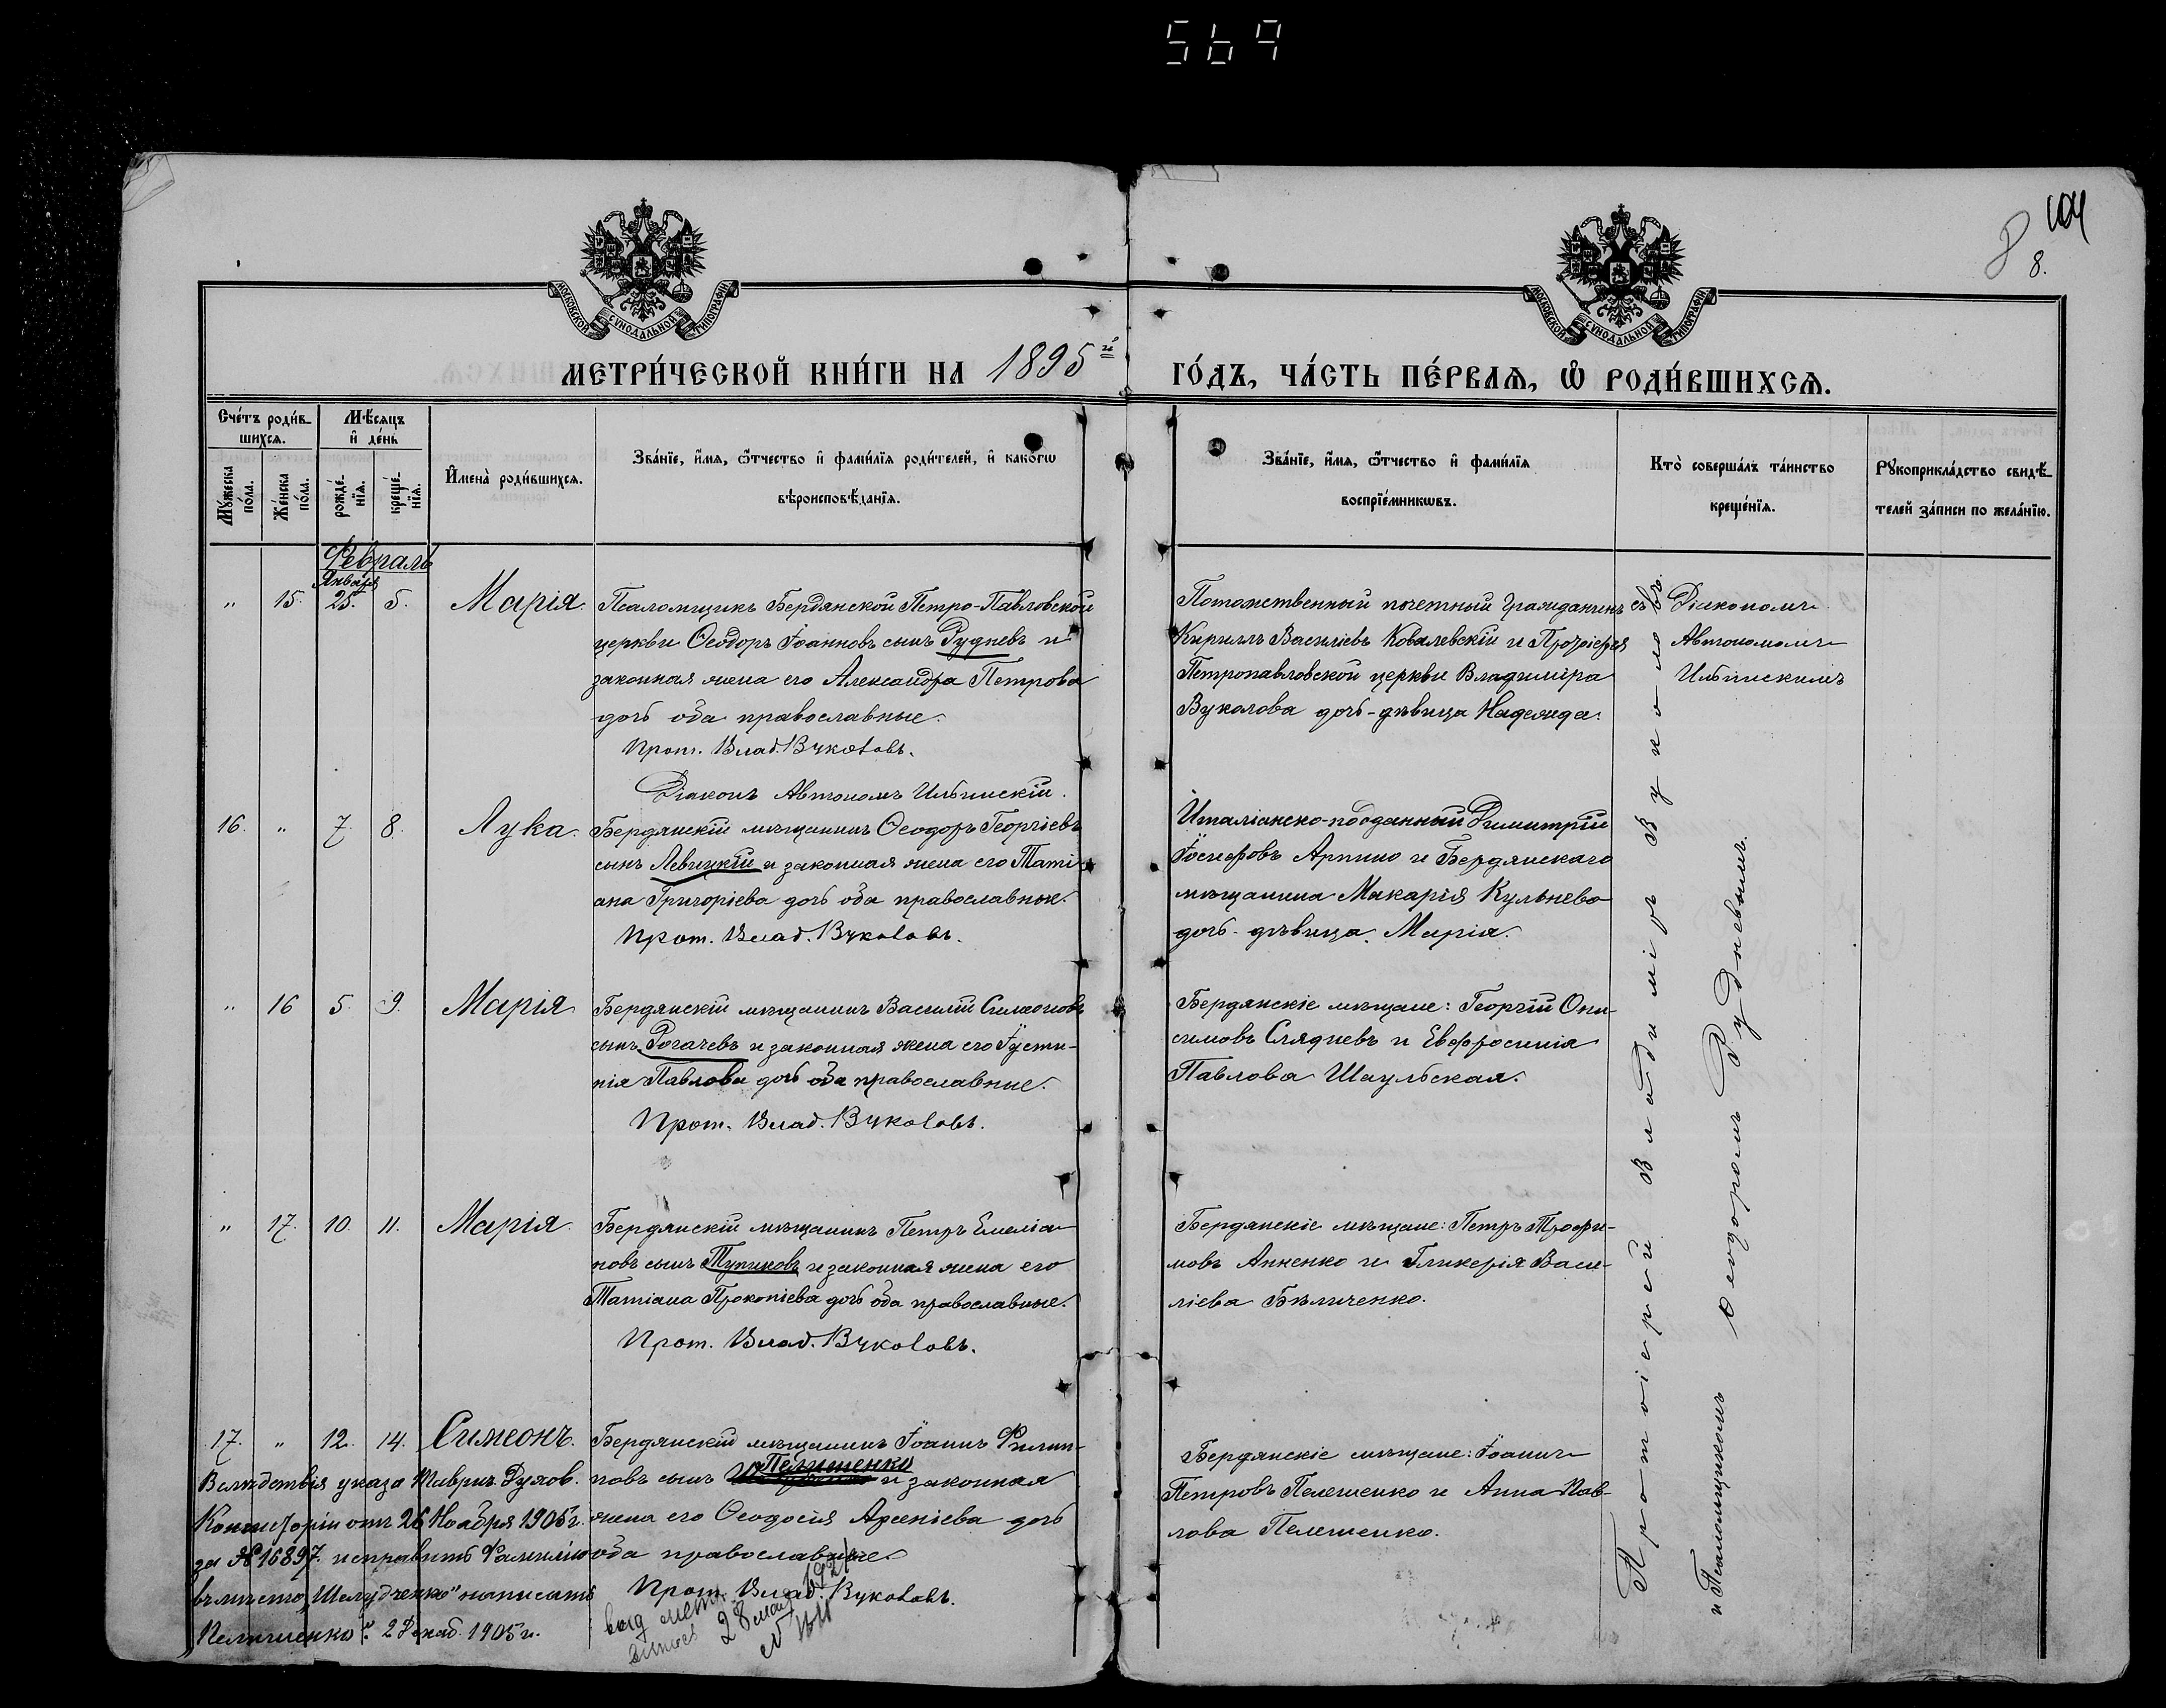 569
104
8
8.
МОСКОВСКОЙ СУНОДАЛЬНОЙ ТИПОГРАФІИ
МОСКОВСКОЙ СУНОДАЛЬНОЙ ТИПОГРАФІИ
МЕТРИ́ЧЕСКОЙ КНИ́ГИ НА 1895й ГО́ДЪ, ЧА́СТЬ ПЕ́РВАЯ, Ѽ РОДИ́ВШИХСЯ.
Сче́тъ роди́в-
шихся.
Мѣ́сяцъ
и҆ де́нь
Мꙋ́жеска
по́ла.
Же́нска
по́ла.
рожде́-
нїя.
креще́-
нїя.
И҆мена̀ роди́вшихся.
Зва́нїе, и҆́мя, ѻ҆́тчество и҆ фами́лїя роди́телей, и҆ како́гѡ
вѣроисповѣ́данїя.
Зва́нїе, и҆́мя, ѻ҆́тчество и҆ фами́лїя
воспрїе́мникѡвъ.
Кто̀ соверша́лъ та́инство
креще́нїя.
Рꙋкоприкла́дство свидѣ́-
телей за́писи по жела́нїю.
Февраль
Января
" 15. 25. 5. Марія.
Псаломщикъ Бердянской Петро-Павловской
церкви Ѳеодоръ Іоанновъ сынъ Рудневъ и
законная жена его Александра Петрова
дочь оба православные.
Прот. Влад. Вуколовъ.
Діаконъ Автономъ Ильинскій.
Потомственный почетный гражданинъ
Кириллъ Василіевъ Ковалевскій и Протоіерея
Петропавловской церкви Владиміра
Вуколова дочь-дѣвица Надежда.
съ Діакономъ
Автономомъ
Ильинскимъ
16. " 7. 8. Лука.
Бердянскій мѣщанинъ Ѳеодоръ Георгіевъ
сынъ Левицкій и законная жена его Таті-
ана Григоріева дочь оба православные.
Прот. Влад. Вуколовъ.
Италіанско-подданный Димитрій
Іосифовъ Арпино и Бердянскаго
мѣщанина Макарія Кульнева
дочь-дѣвица Марія.
" 16 5. 9. Марія
Бердянскій мѣщанинъ Василій Симеоновъ
сынъ Рогачевъ и законная жена его Іусти-
нія Павлова дочь оба православные.
Прот. Влад. Вуколовъ.
Бердянскіе мѣщане: Георгій Они-
симовъ Слядневъ и Евфросинія
Павлова Шаульская.
" 17. 10. 11. Марія.
Бердянскій мѣщанинъ Петръ Емеліа-
новъ сынъ Тупиковъ и законная жена его
Татіана Прокопіева дочь оба православные.
Прот. Влад. Вуколовъ.
Бердянскіе мѣщане: Петръ Трофи-
мовъ Анненко и Гликерія Васи-
ліева Бѣличенко.
17. " 12. 14. Симеонъ.
Бердянскій мѣщанинъ Іоаннъ Филип-
Пелешенко
повъ сынъ и законная
жена его Ѳеодосія Арсеніева дочь
оба православные.
Прот. Влад. Вуколовъ.
Бердянскіе мѣщане: Іоаннъ
Петровъ Пелешенко и Анна Пав-
лова Пелешенко.
Вслѣдствія указа Таврич. Духов.
Консисторіи отъ 26 Ноября 1905 г.
за № 16897. исправить Фамилію
вмѣсто „Шелудченко" написать
Пелешенко". 2 Декаб. 1905 г.
выд. метр.
28 мая 1921
Протоіерей Владиміръ Вуколовъ
и Псаломщикомъ Ѳеодоромъ Рудневымъ.